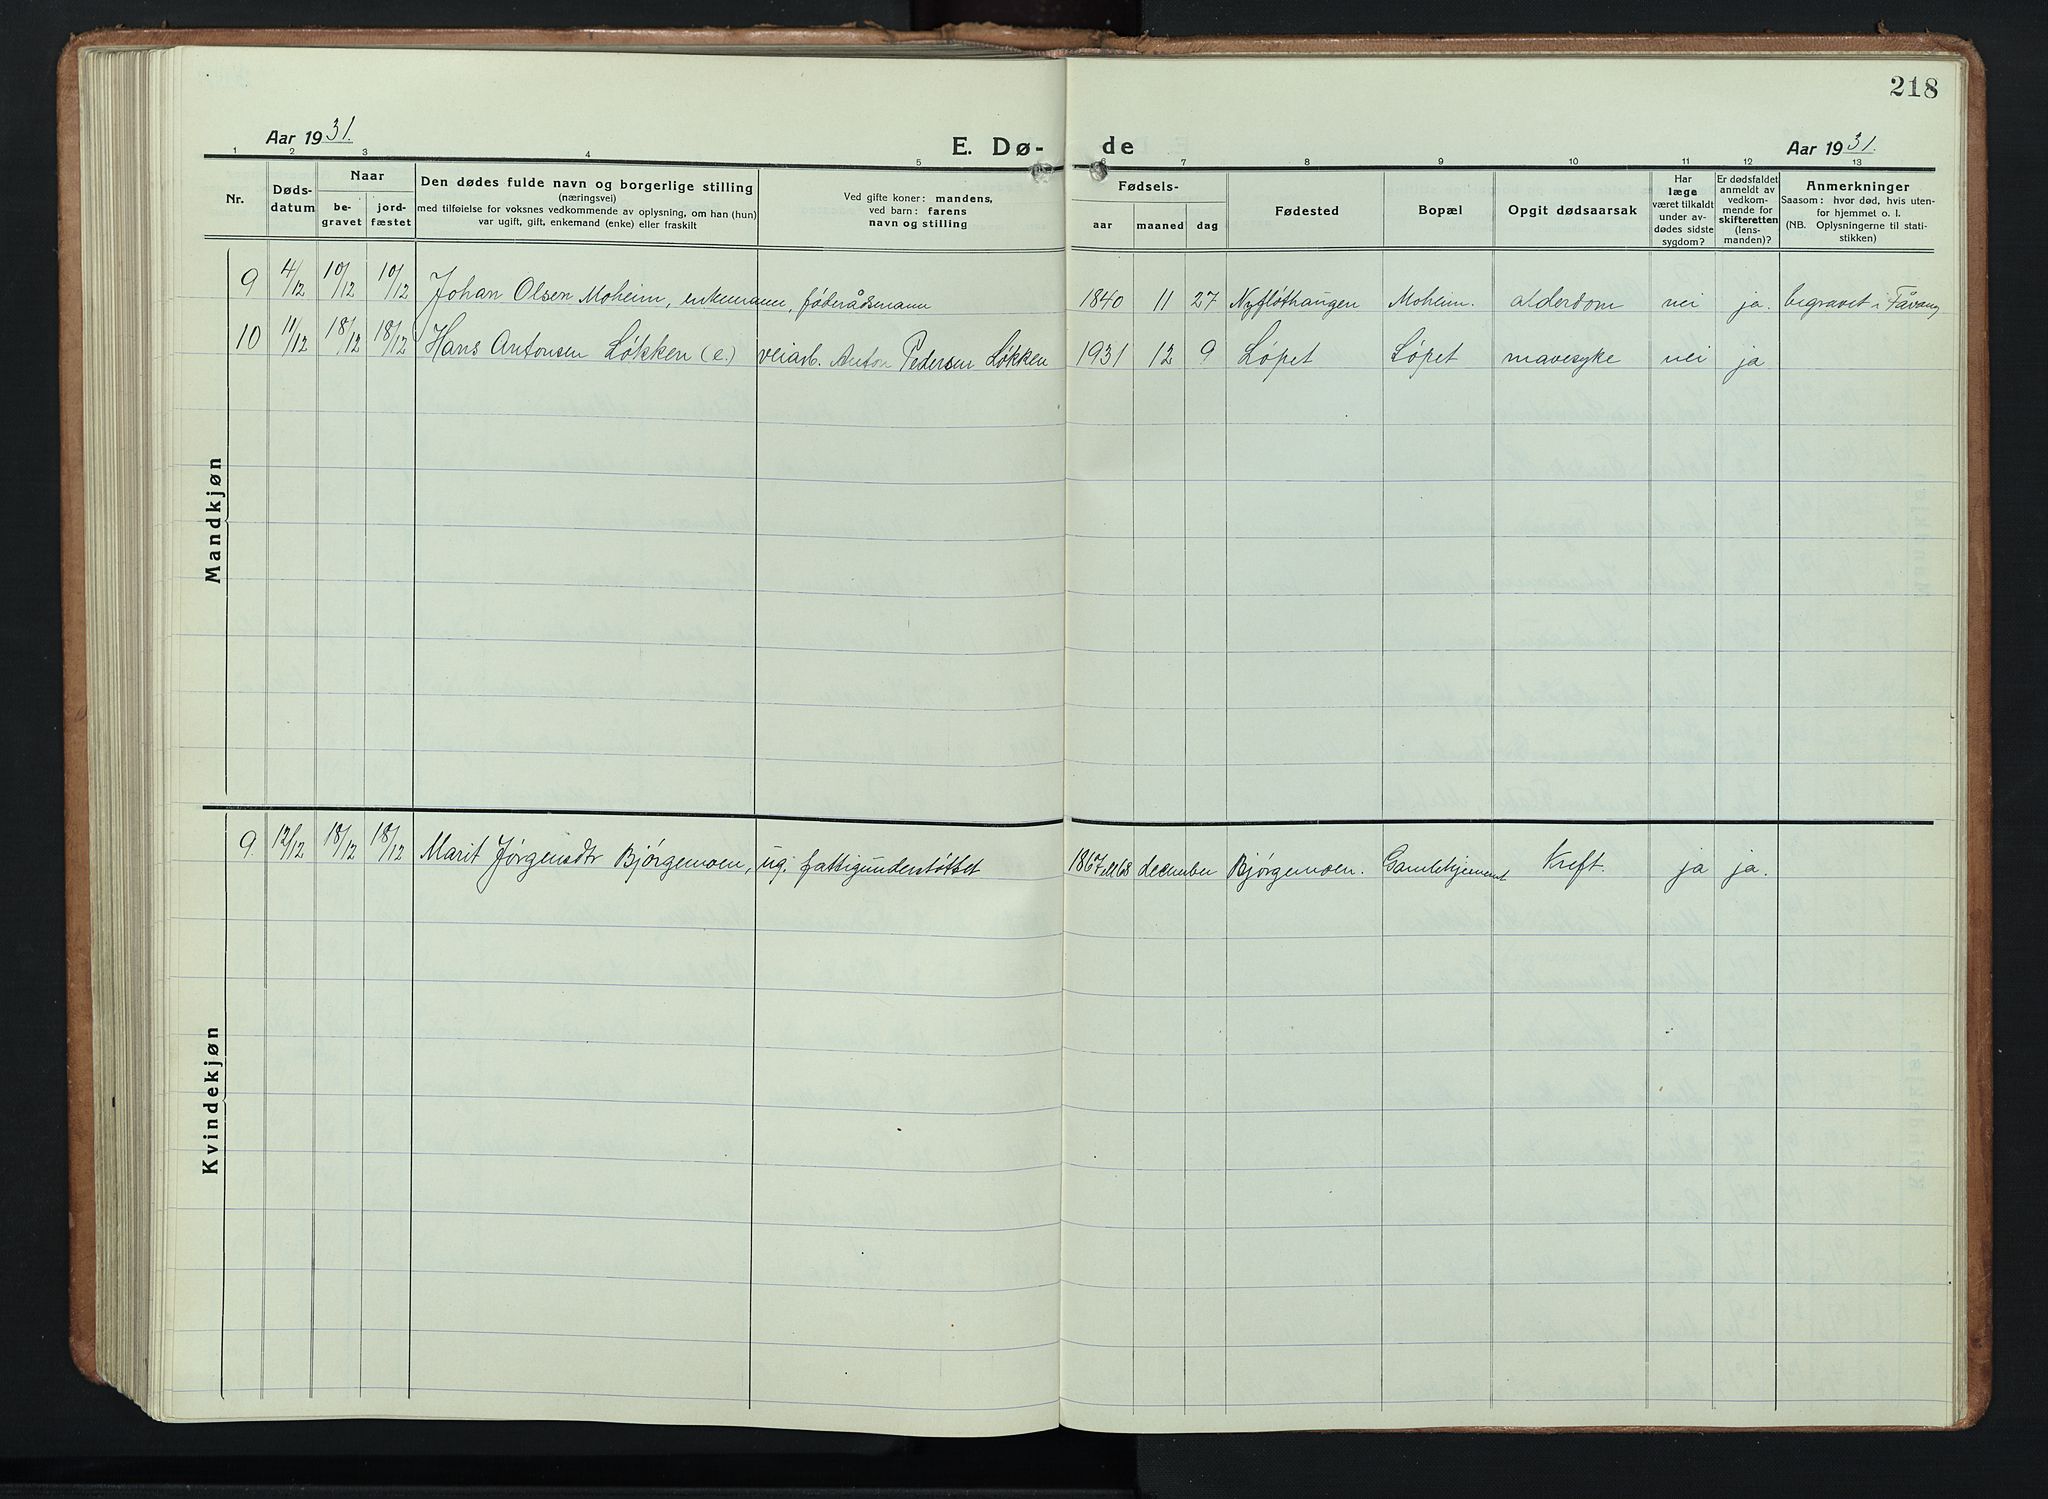 218
Aar 1931. E. Dø- de Aar 1931.
1 2 3 4 5 6 7 8 9 10 11 12 13
Nr.
Døds-
datum
Naar
be-
gravet
jord-
fæstet
Den dødes fulde navn og borgerlige stilling
(næringsvei)
med tilføielse for voksnes vedkommende av oplysning, om han (hun)
var ugift, gift, enkemand (enke) eller fraskilt
Ved gifte koner: mandens,
ved barn: farens
navn og stilling
Fødsels-
aar maaned dag
Fødested
Bopæl
Opgit dødsaarsak
Har
læge
været tilkaldt
under av-
dødes sidste
sygdom?
Er dødsfaldet
anmeldt av
vedkom-
mende for
skifteretten
(lens-
manden)?
Anmerkninger
Saasom: hvor død, hvis uten-
for hjemmet o. l.
(NB. Oplysningerne til stati-
stikken)
Mandkjøn
9 4/12 10/12 10/12 Johan Olsen Moheim, enkemann, føderådsmann 1840 11 27 Nyfløthaugen Moheim. alderdom nei ja. begravet i Fåvang
10 11/12 18/12 18/12 Hans Antonsen Løkken (e.) veiarb. Anton Pedersen Løkken 1931 12 9 Løpet Løpet mavesyke nei ja
Kvindekjøn
9. 12/12 18/12 18/12 Marit Jørgensdtr Bjørgemoen, ug. fattigunderstøttet 1867 ell 68 december Bjørgemoen. Gamlehjemmet Kreft. ja ja.